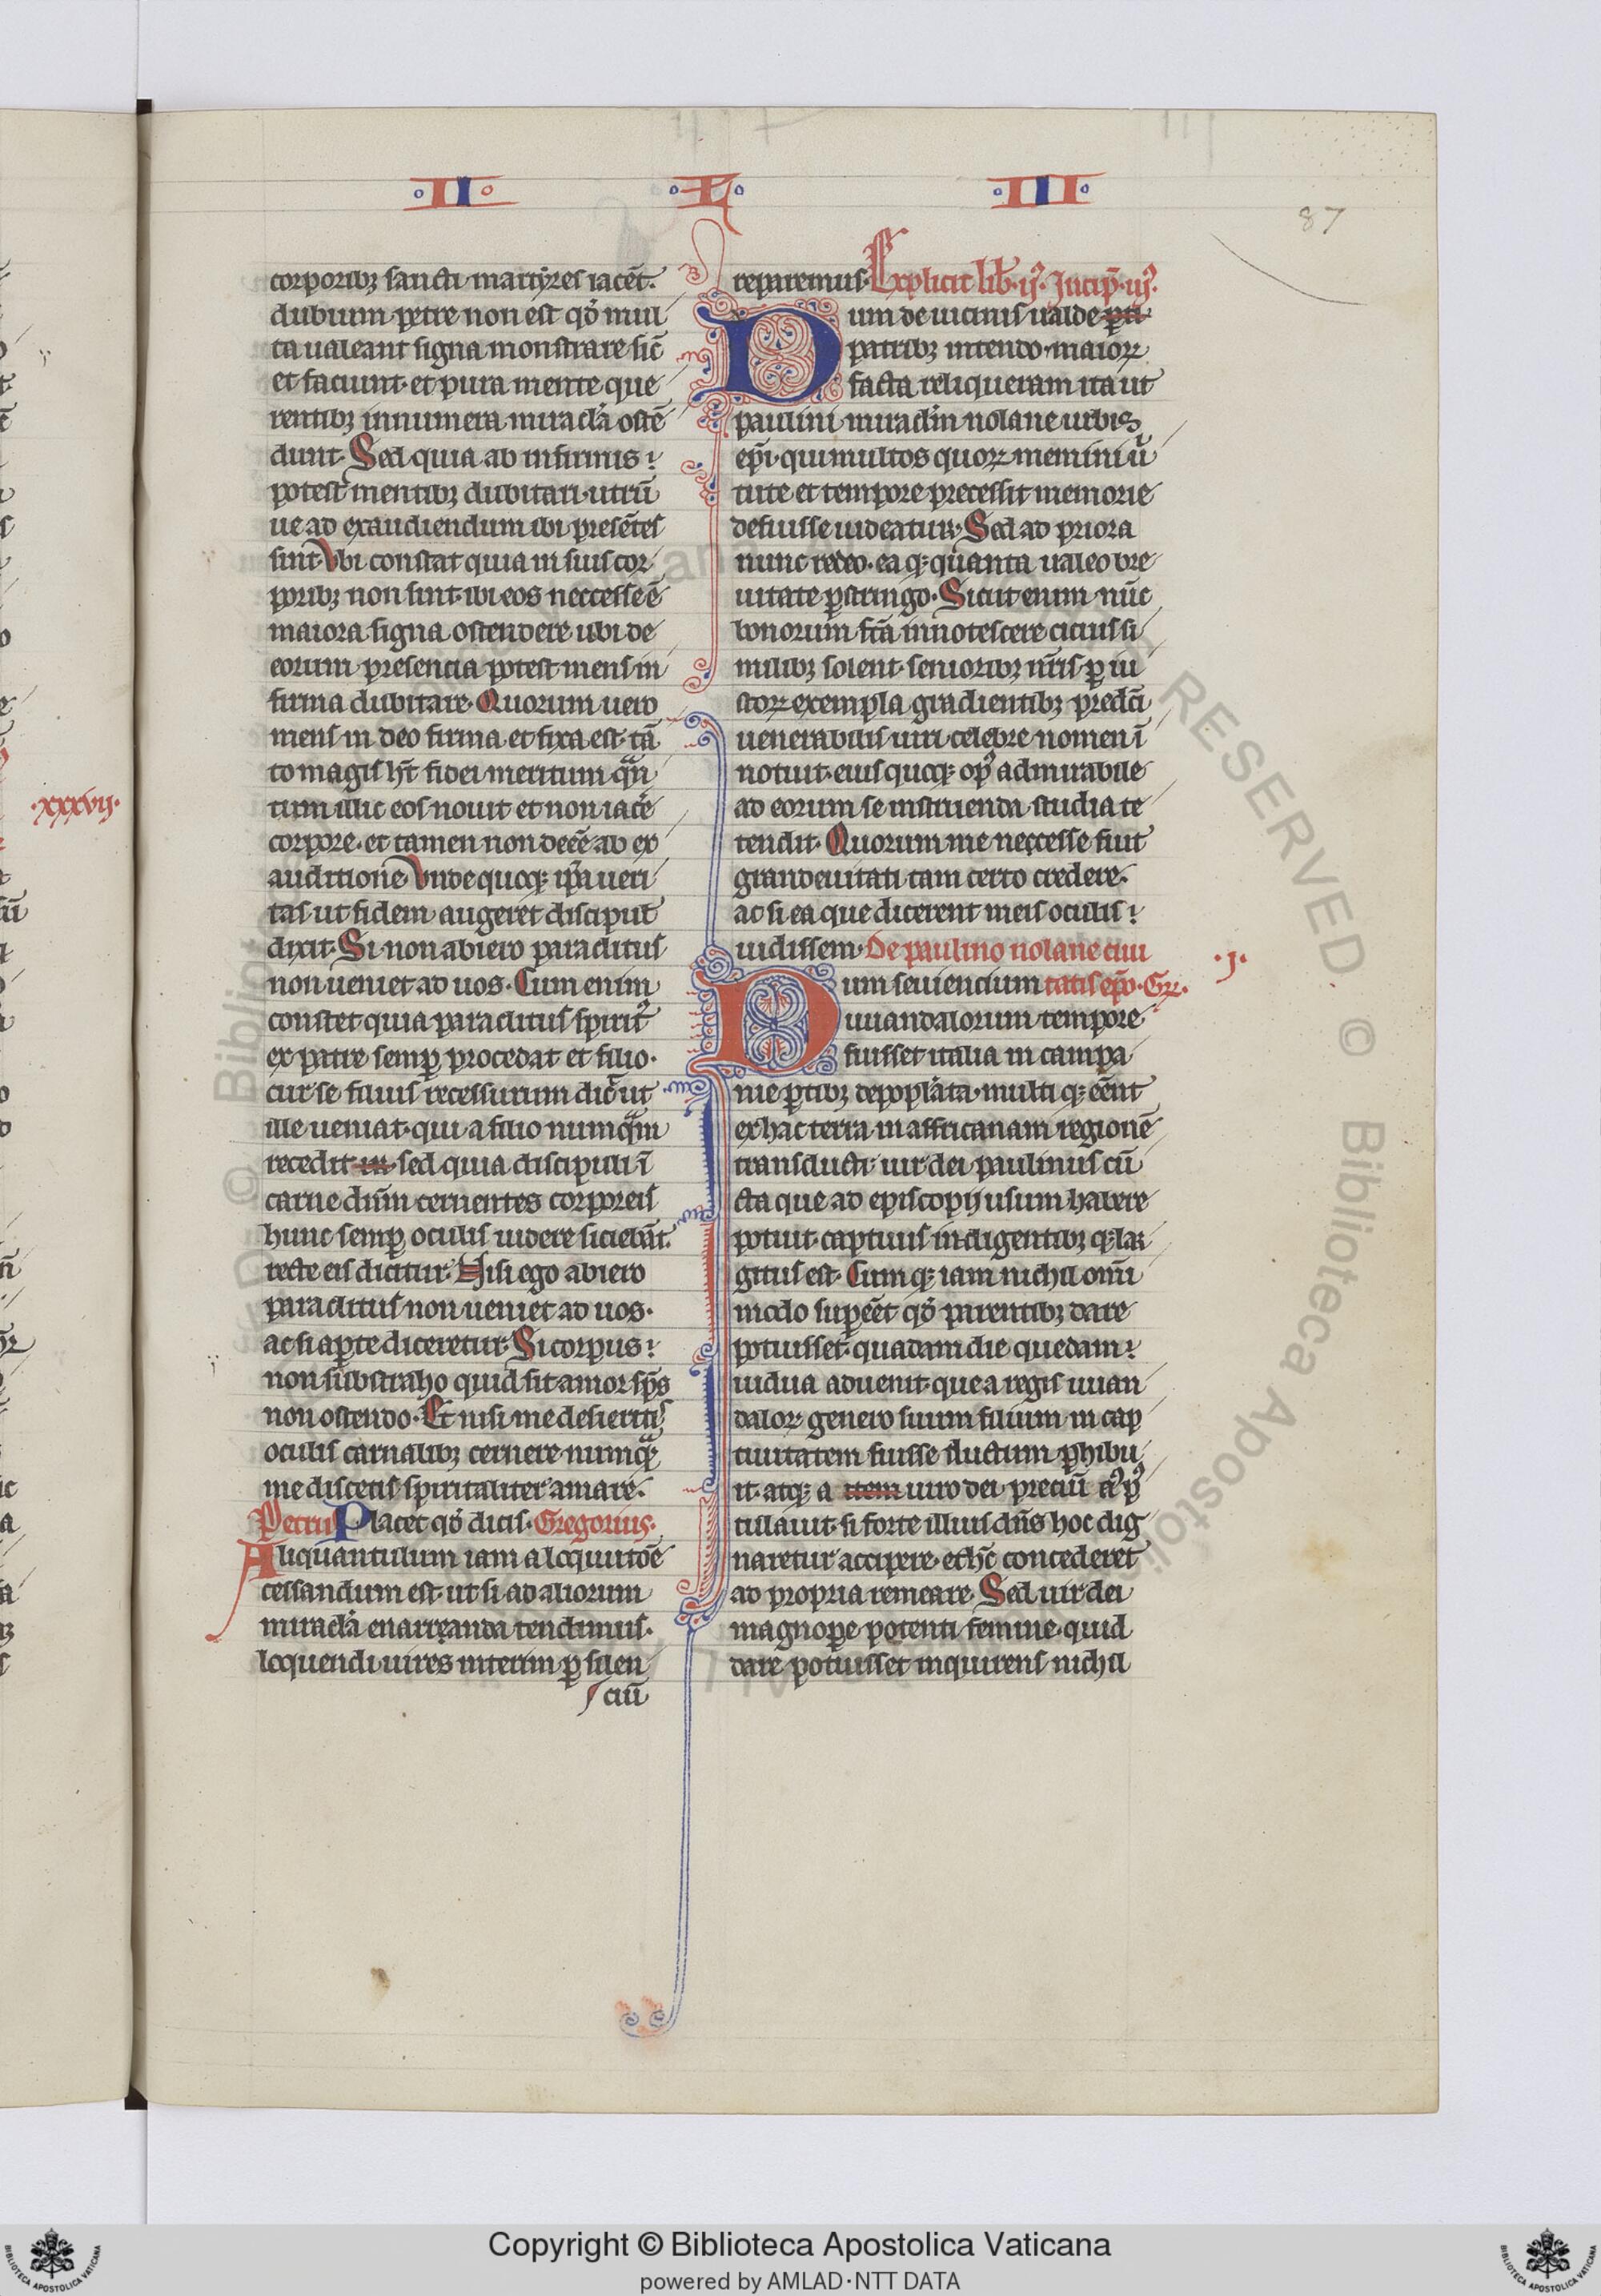 ·II· ·L· ·III·
87
corporibꝫ sancti martyres iacēt.
dubium petre non est qď mul
ta ualeant signa monstrare sic̄
et faciunt· et pura mente que
rentibꝫ innumera miracl̓a ostē
dunt· Sed quia ab infirmis
potest mentibꝫ dubitari· utrū
ue ad exaudiendum ibi presētes
sint· Vbi constat quia in suis cor
poribꝫ non sint· ibi eos neccesse ē
maiora signa ostendere ubi de
eorum presencia potest mens in
firma dubitare· Quorum uero
mens in deo firma et fixa est· tā
to magis hꝫ fidei meritum quan
tum illic eos nouit et non iacē
corpore· et tamen non deeē ab ex
auditione· Vnde quoqꝫ ip̄a ueri
tas ut fidem augeret discipul̓
dixit· Si non abiero paraclitus
non ueniet ad uos· Cum enim
constet quia paraclitus spirit᷒
ex patre semꝑ procedat et filio·
cur se filius recessurum dic̄ ut
ille ueniat· qui a filio numquam
recedit in· sed quia discipuli ī
carne dn̄m cernentes corporeis
hunc semꝑ oculis uidere sitiebāt·
recte eis dicitur· Nisi ego abiero
paraclitus non ueniet ad uos·
ac si aꝑte diceretur· Si corpus
non substraho quid sit amor sp̄s
non ostendo· Et nisi me desieritis
oculis carnalibꝫ cernere· numquā
me discetis spiritaliter amare·
Petrus Placet qď dicis· Gregorius·
Aliquantulum iam a locuutōe
cessandum est· ut si ad aliorum
miracl̓a enarranda tendimus·
loquendi uires interim ꝑ silen
ciū
reparemus· Explicit lib̄· ij᷒· Incip̄· iij᷒·
Dum de uicinis ualde pa
patribꝫ intendo· maioꝝ
facta reliqueram ita ut
paulini miracl̓m nolane urbis
ep̄i· qui multos quoꝝ memini ū
tute et tempore precessit memorie
defuisse uideatur· Sed ad priora
nunc redeo· ea qꝫ quanta ualeo bre
uitate ꝑstringo· Sicut enim nūc
bonorum fc̄a innotescere cicius si
milibꝫ solent· senioribꝫ nr̄is ꝑ iu
stoꝝ exempla gradientibꝫ predc̄i
uenerabilis uiri celebre nomen ī
notuit· eius quoqꝫ op᷒ admirabile
ad eorum se instruenda studia te
tendit· Quorum me neccesse fuit
grandeuitati tam certo credere·
ac si ea que dicerent meis oculis
uidissem· De paulino nolane ciui
·j·
Dum seuiencium tatis ep̄o· Gꝝ·
uuandalorum tempore
fuisset italia in campa
nie ꝑtibꝫ depopl̓ata· multi qꝫ eēnt
ex hac terra in affricanam regionē
transducti· uir dei paulinus cū
cta que ad episcopij usum habere
potuit captiuis indigentibꝫ qꝫ lar
gitus est· Cum qꝫ iam nichil omī
modo suꝑeēt qď parentibꝫ dare
potuisset· quadam die quedam
uidua aduenit· que a regis uuan
daloꝝ genero suum filium in cap
tiuitatem fuisse ductum ꝑhibu
it· atqꝫ a item uiro dei preciū ei᷒ po᷒
tulauit· si forte illius dn̄s hoc dig
naretur accipere· et hc̄ concederet
ad propria remeare· Sed uir dei
magnopere potenti femine· quid
dare potuisset inquirens nichil
·xxxvij·
Copyright © Biblioteca Apostolica Vaticana
powered by AMLAD·NTT DATA